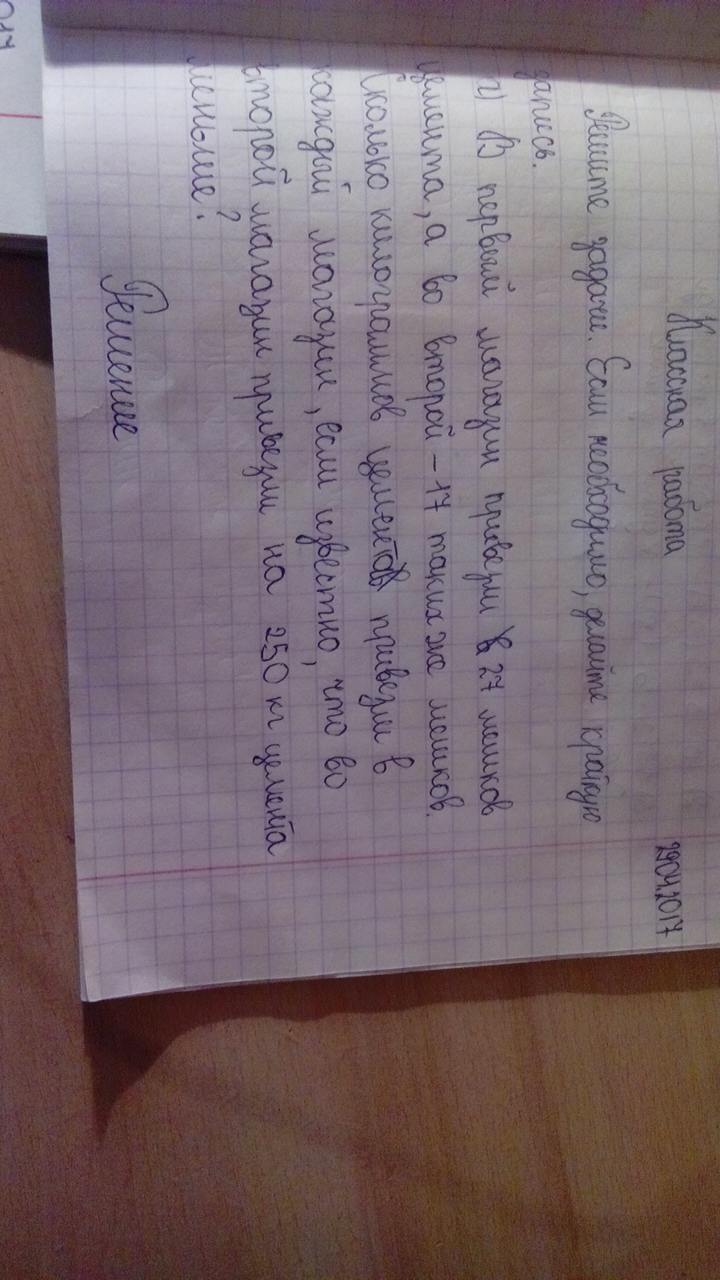 29.04.2017
Классная работа
Решите задачи. Если необходимо, делайте краткую
запись.
г) В первый магазин привезли 27 мешков
цемента, а во второй – 17 таких же мешков.
Сколько килограммов цемента привезли в
каждый магазин, если известно, что во
второй магазин привезли на 250 кг цемента
меньше?
Решение
017